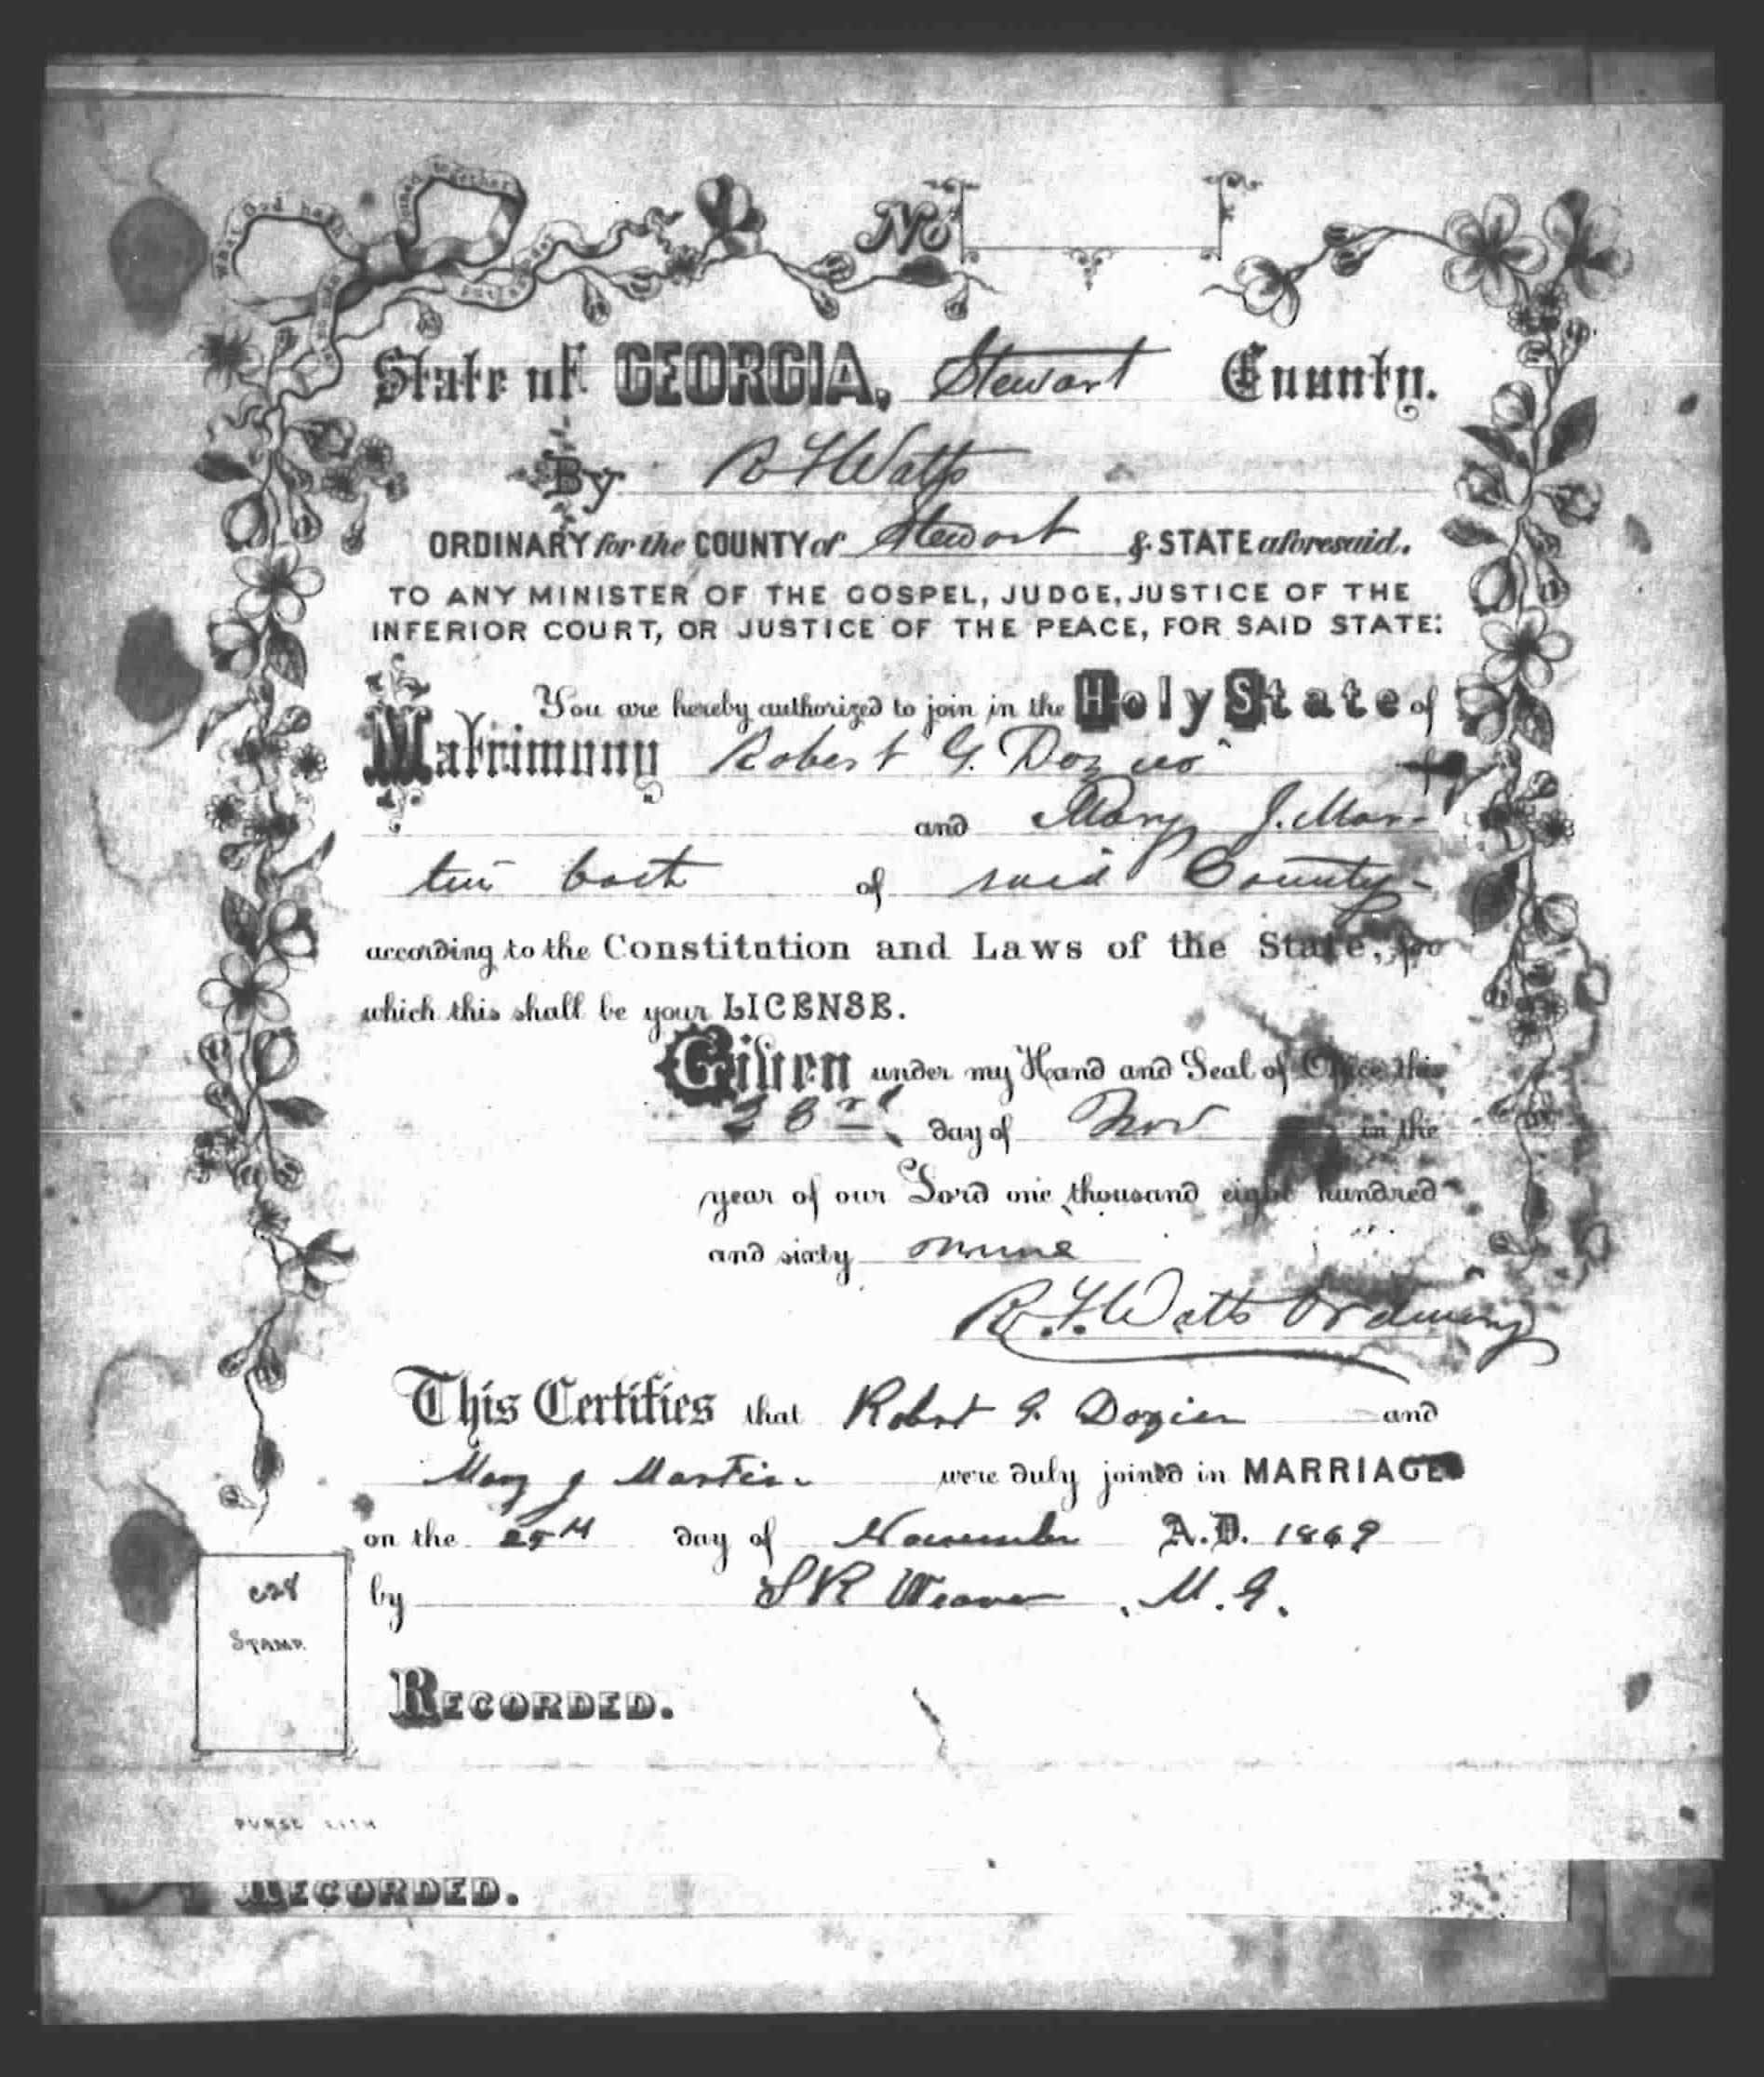 what God hath joined together let no man put asunder
No
State of GEORGIA, Stewart County.
By R F Watts
ORDINARY for the COUNTY of Stewart & STATE aforesaid.
TO ANY MINISTER OF THE GOSPEL, JUDGE, JUSTICE OF THE
INFERIOR COURT, OR JUSTICE OF THE PEACE, FOR SAID STATE:
You are hereby authorized to join in the Holy State of
Matrimony Robert G. Dozier
and Mary J. Mar-
tin both of said County
according to the Constitution and Laws of the State, for
which this shall be your LICENSE.
Given under my Hand and Seal of Office this
23rd day of Nov in the
year of our Lord one thousand eight hundred
and sixty nine
R. F. Watts Ordinary
This Certifies that Robert G. Dozier and
Mary J Martin were duly joined in MARRIAGE
on the 25th day of November A.D. 1869
by S R Weaver, M. G.
STAMP.
RECORDED.
PURSE LITH
RECORDED.